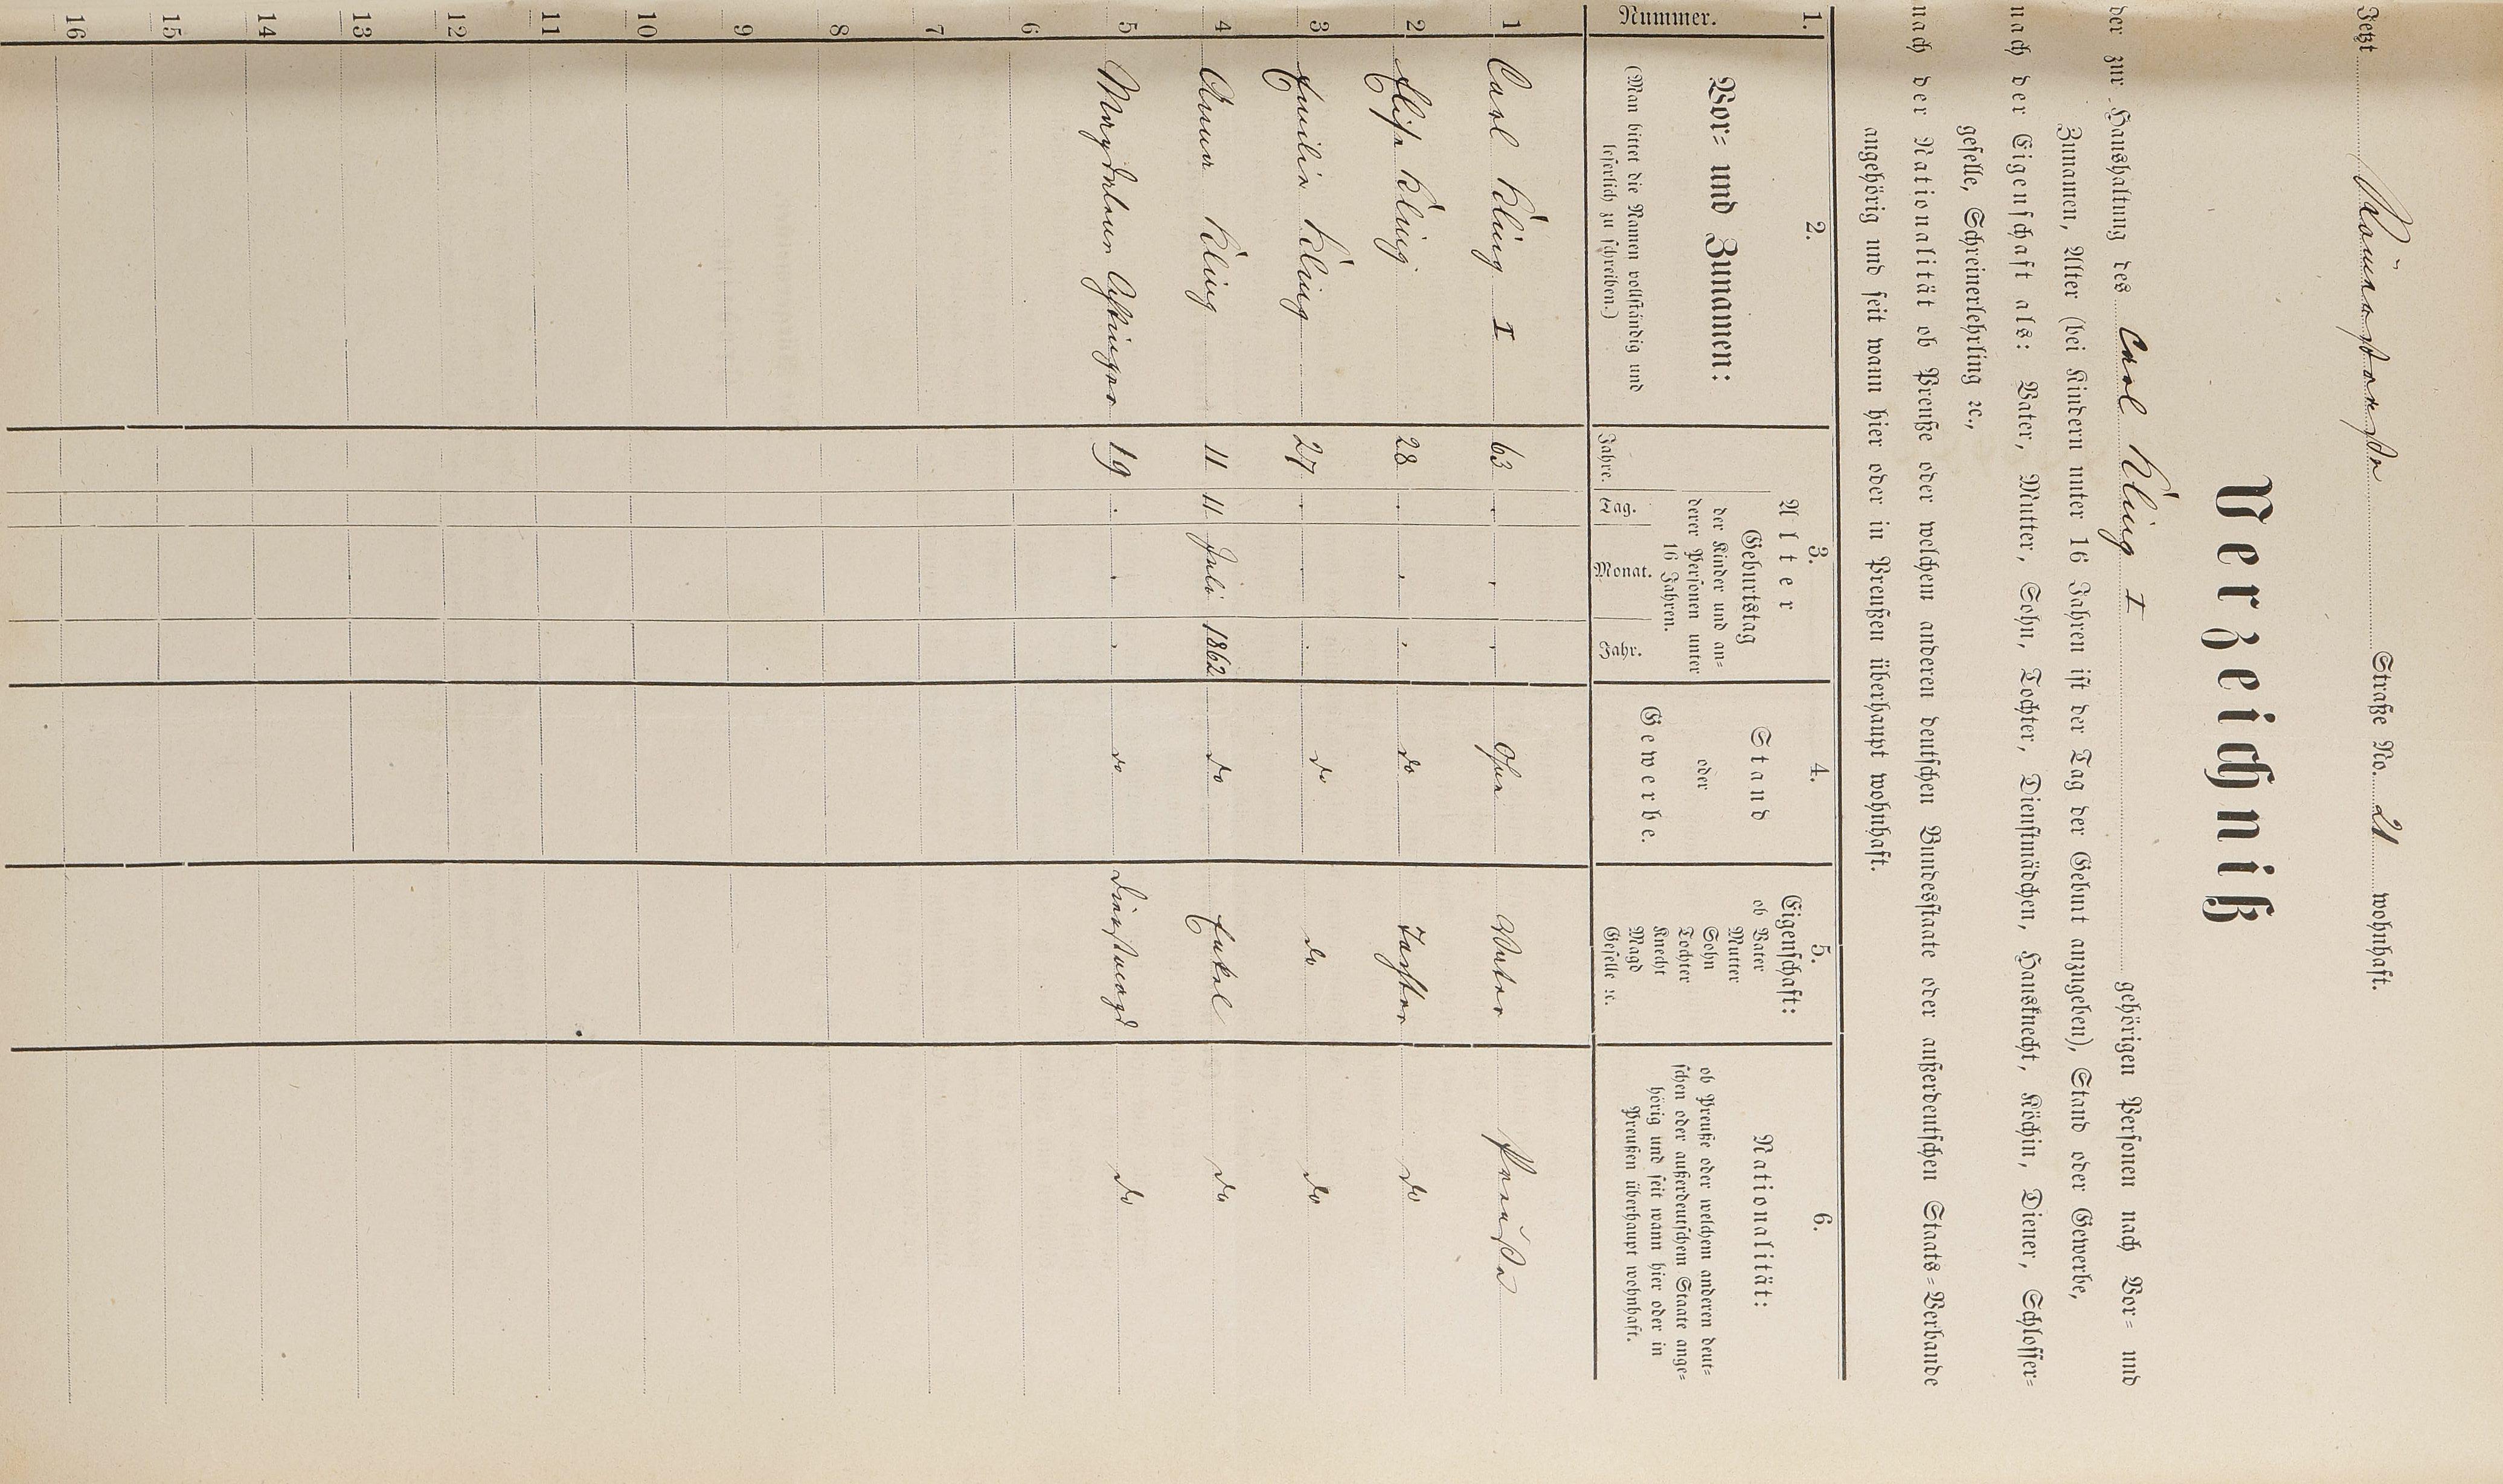 Jetzt Römergasse Straße No. 21 wohnhaft.
Verzeichniß
der zur Haushaltung des Carl Kling I gehörigen Personen nach Vor= und
Zunamen, Alter (bei Kindern unter 16 Jahren ist der Tag der Geburt anzugeben), Stand oder Gewerbe,
nach der Eigenschaft als: Vater, Mutter, Sohn, Tochter, Dienstmädchen, Hausknecht, Köchin, Diener, Schlosser=
geselle, Schreinerlehrling ꝛc.,
nach der Nationalität ob Preuße oder welchem anderen deutschen Bundesstaate oder außerdeutschen Staats=Verbande
angehörig und seit wann hier oder in Preußen überhaupt wohnhaft.
1. 2. 3. 4. 5. 6.
Nummer.
Vor= und Zunamen:
(Man bittet die Namen vollständig und
leserlich zu schreiben.)
Alter
Geburtstag
der Kinder und an=
derer Personen unter
16 Jahren.
Jahre. Tag. Monat. Jahr.
Stand
oder
Gewerbe.
Eigenschaft:
ob Vater
Mutter
Sohn
Tochter
Knecht
Magd
Geselle ꝛc.
Nationalität:
ob Preuße oder welchem anderen deut=
schen oder außerdeutschen Staate ange=
hörig und seit wann hier oder in
Preußen überhaupt wohnhaft.
1 Carl Kling I 63 . . . Ohne Vater Preuße
2 Elise Kling 28 . . . do Tochter do
3 Emilie Kling 27 . . . do do do
4 Anna Kling 11 11 Juli 1862 do Enkel do
5 Magdalena 19 . . . do Dienstmagd do
6
7
8
9
10
11
12
13
14
15
16